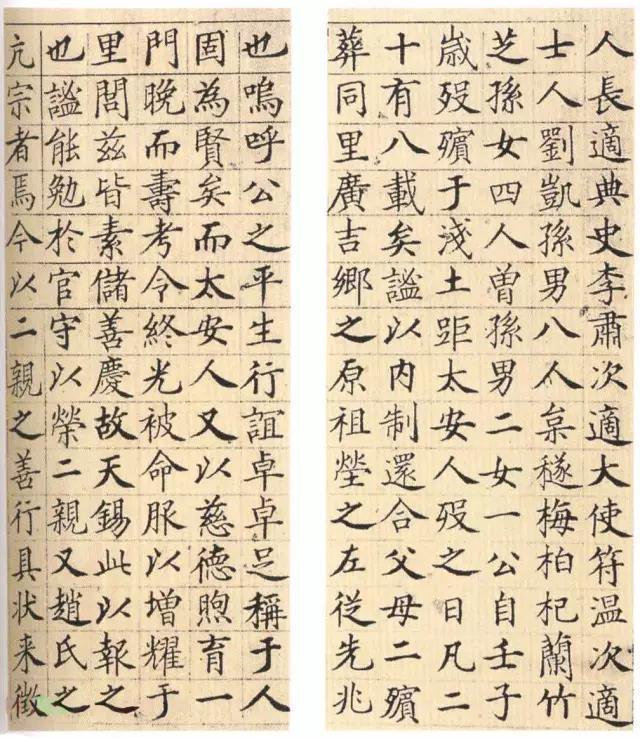 人長適典史李肅次適大使符温次適
士人劉凱孫男八人穟梅柏杞蘭竹
芝孫女四人曽孫男二女一公自壬子
歳歿殯于淺土距太安人歿之日凡二
十有八載矣謐以内制還合父母二殯
葬同里廣吉鄉之原祖塋之左從先兆
也嗚呼公之平生行誼卓卓足稱于人
固為賢矣而太安人又以慈德煦育一
門晚而壽考令終光被命服以增耀于
里閭茲皆素儲善慶故天錫此以報之
也謐能勉於官守以榮二親又趙氏之
亢宗者焉今以二親之善行具状来徵